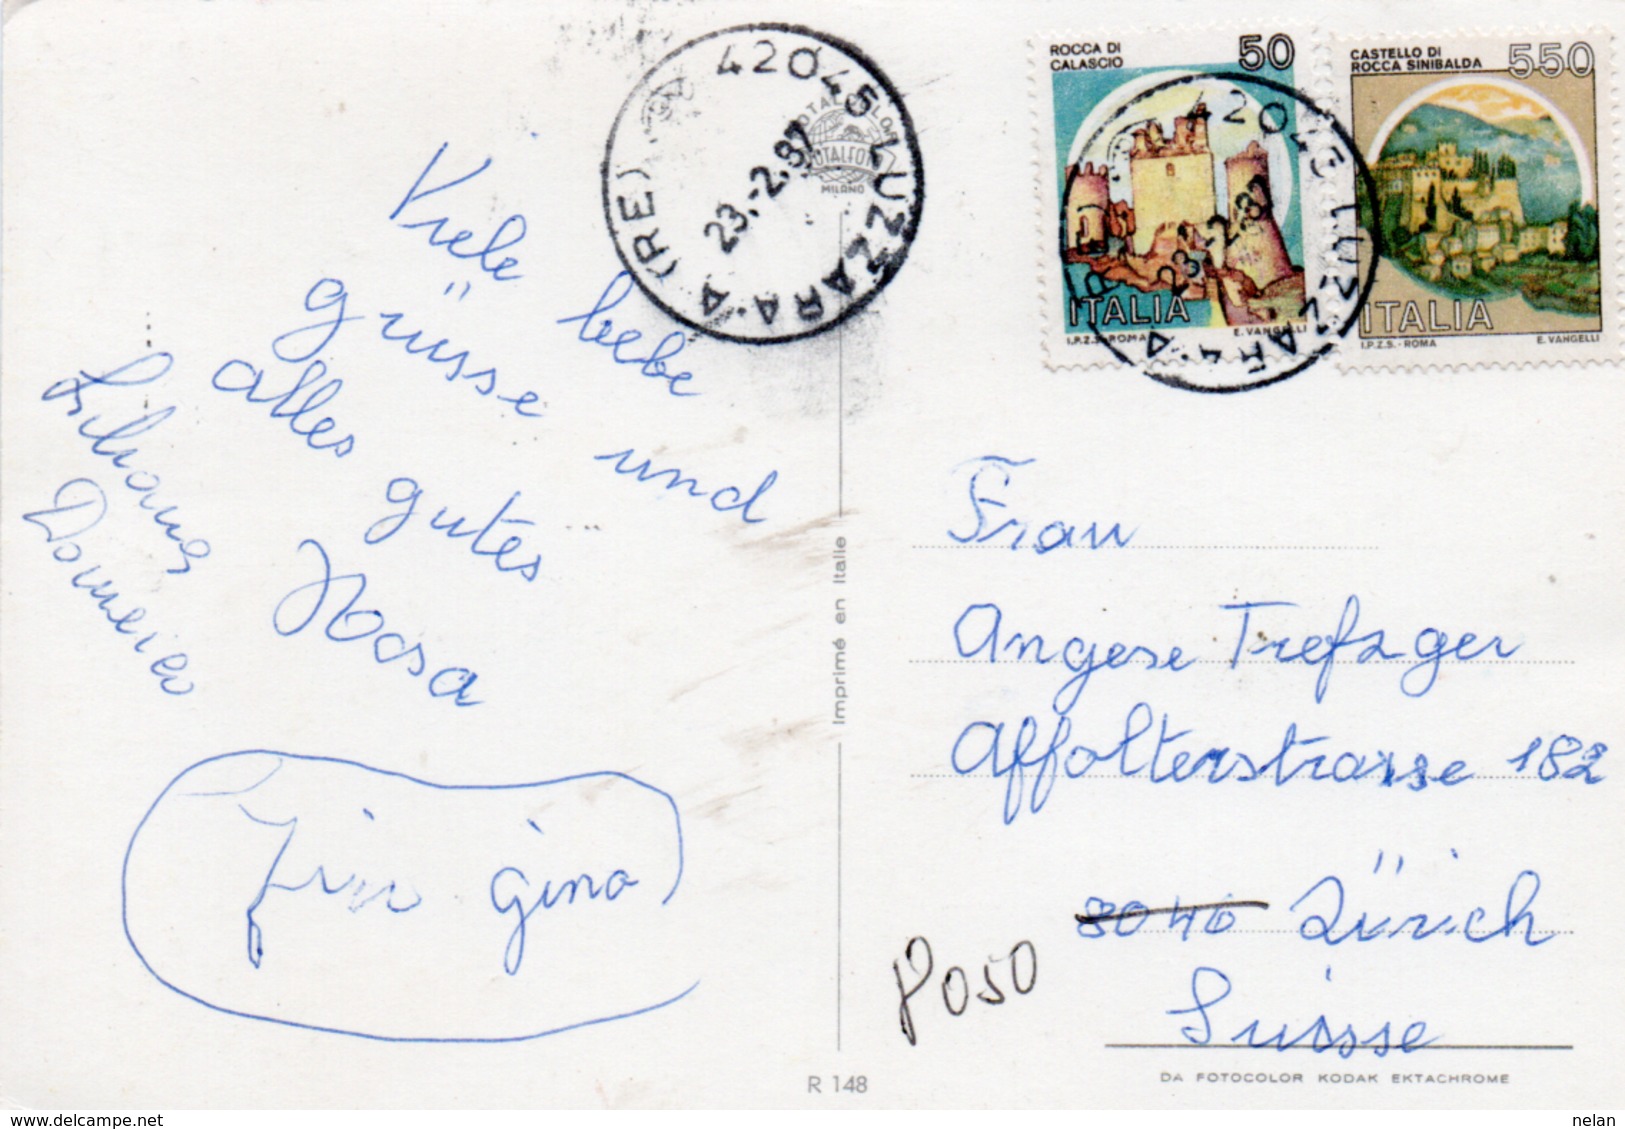 Viele liebe
grüsse und
alles gutes
Rosa
Liliana
Domenico
gino
42045 LUZZARA · A (RE)
23.-2.87
MILANO
ROCCA DI
CALASCIO
50
ITALIA
I.P.Z.S.-ROMA
E. VANGELLI
CASTELLO DI
ROCCA SINIBALDA
550
ITALIA
I.P.Z.S. - ROMA
E. VANGELLI
42045 LUZZARA · A (RE)
23.-2.87
Imprimé en Italie
Frau
Angese Trefzger
Affolterstrasse 182
8040 Zürich
8050
Suisse
R 148
DA FOTOCOLOR KODAK EKTACHROME
nelan